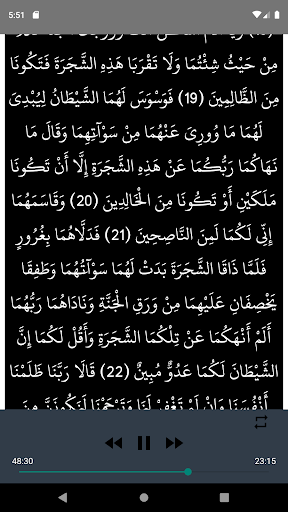 5:51
مِنْ حَيْثُ شِئْتُمَا وَلَا تَقْرَبَا هَذِهِ الشَّجَرَةَ فَتَكُونَا
مِنَ الظَّالِمِينَ (19) فَوَسْوَسَ لَهُمَا الشَّيْطَانُ لِيُبْدِيَ
لَهُمَا مَا وُورِيَ عَنْهُمَا مِنْ سَوْآتِهِمَا وَقَالَ مَا
نَهَاكُمَا رَبُّكُمَا عَنْ هَذِهِ الشَّجَرَةِ إِلَّا أَنْ تَكُونَا
مَلَكَيْنِ أَوْ تَكُونَا مِنَ الْخَالِدِينَ (20) وَقَاسَمَهُمَا
إِنِّي لَكُمَا لَمِنَ النَّاصِحِينَ (21) فَدَلَّاهُمَا بِغُرُورٍ
فَلَمَّا ذَاقَا الشَّجَرَةَ بَدَتْ لَهُمَا سَوْآتُهُمَا وَطَفِقَا
يَخْصِفَانِ عَلَيْهِمَا مِنْ وَرَقِ الْجَنَّةِ وَنَادَاهُمَا رَبُّهُمَا
أَلَمْ أَنْهَكُمَا عَنْ تِلْكُمَا الشَّجَرَةِ وَأَقُلْ لَكُمَا إِنَّ
الشَّيْطَانَ لَكُمَا عَدُوٌّ مُبِينٌ (22) قَالَا رَبَّنَا ظَلَمْنَا
أَنْفُسَنَا وَإِنْ لَمْ تَغْفِرْ لَنَا وَتَرْحَمْنَا لَنَكُونَنَّ مِنَ
48:30 23:15